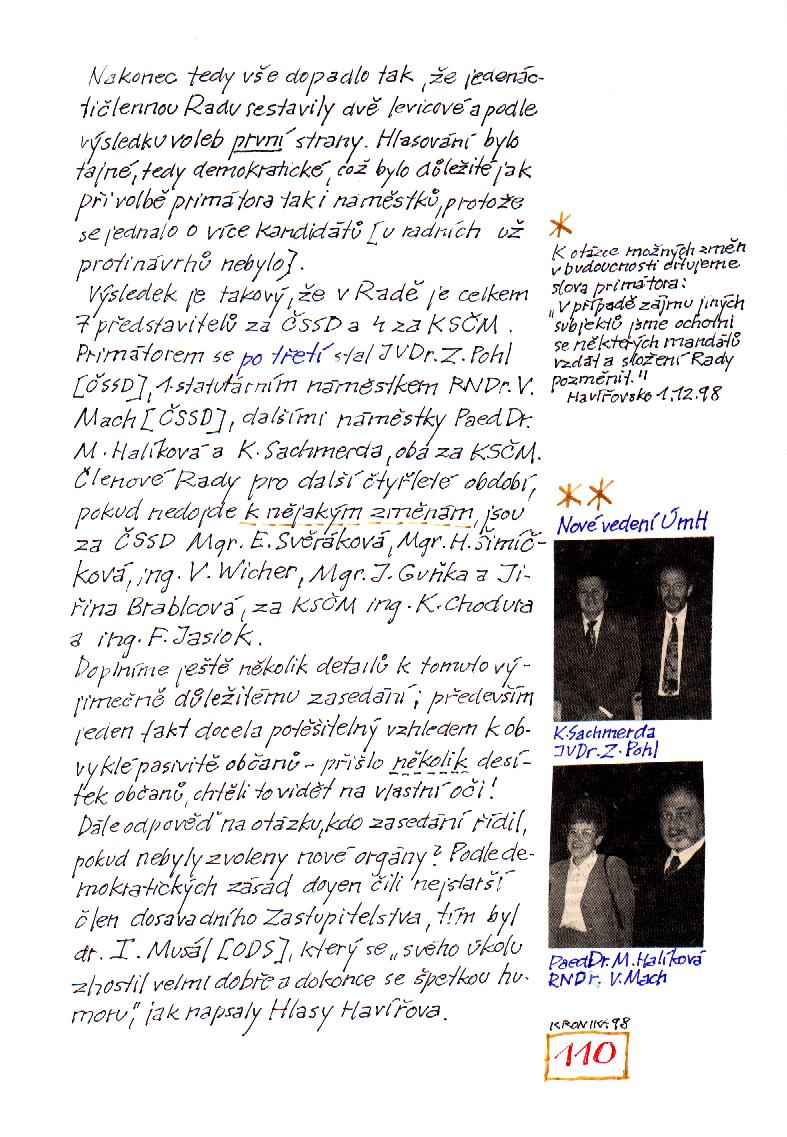 Nakonec tedy vše dopadlo tak, že jedenác-
tičlennou Radu sestavily dvě levicové a podle
výsledku voleb první strany. Hlasování bylo
tajné, tedy demokratické, což bylo důležité jak
při volbě primátora tak i náměstků, protože
se jednalo o více kandidátů [u radních už
protinávrhů nebylo].
Výsledek je takový, že v Radě je celkem
7 představitelů za ČSSD a 4 za KSČM.
Primátorem se po třetí stal JUDr. Z. Pohl
[ČSSD], 1. statutárním náměstkem RNDr. V.
Mach [ČSSD], dalšími náměstky PaedDr.
M. Halíková a K. Sachmerda, oba za KSČM.
Členové Rady pro další čtyřleté období,
pokud nedojde k nějakým změnám, jsou
za ČSSD Mgr. E. Svěráková, Mgr. H. Šimíč-
ková, ing. V. Wicher, Mgr. J. Guňka a Ji-
řina Brablcová, za KSČM ing. K. Chodura
a ing. F. Jasiok.
Doplníme ještě několik detailů k tomuto vý-
jimečně důležitému zasedání; především
jeden fakt docela potěšitelný vzhledem k ob-
vyklé pasivitě občanů - přišlo několik desí-
tek občanů, chtěli to vidět na vlastní oči!
Dále odpověď na otázku, kdo zasedání řídil,
pokud nebyly zvoleny nové orgány? Podle de-
mokratických zásad doyen čili nejstarší
člen dosavadního Zastupitelstva, tím byl
dr. I. Musál [ODS], který se „svého úkolu
zhostil velmi dobře a dokonce se špetkou hu-
moru," jak napsaly Hlasy Havířova.
*
K otázce možných změn
v budoucnosti citujeme
slova primátora:
„V případě zájmu jiných
subjektů jsme ochotni
se některých mandátů
vzdát a složení Rady
pozměnit."
Havířovsko 1.12.98
**
Nové vedení ÚmH
K. Sachmerda
JUDr. Z. Pohl
PaedDr. M. Halíková
RNDr. V. Mach
KRONIKA 98
110